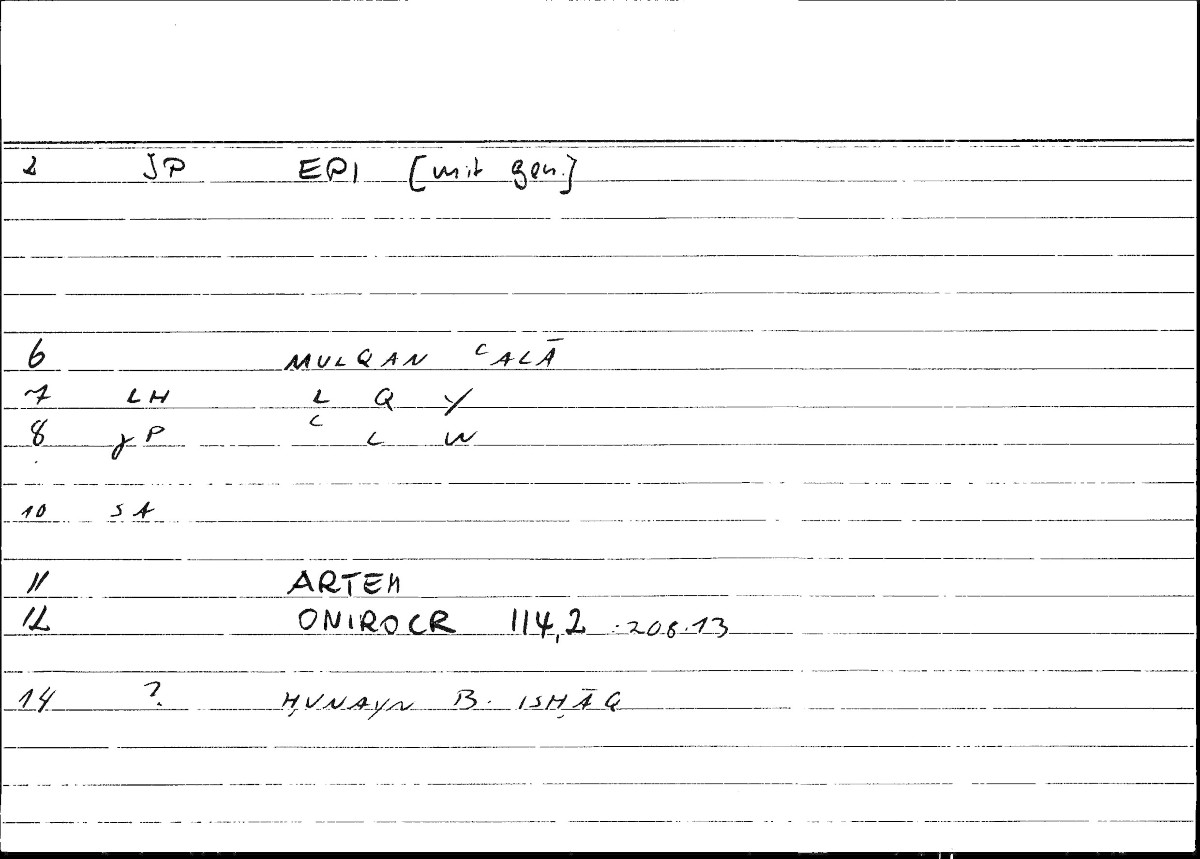 2 JP EPI [mit gen.]
6 MULQAN ʿALĀ
7 LH L Q Y
8 JP ʿ L W
10 SA
11 ARTEM
12 ONIROCR 114,2 :208.13
14 ? ḤUNAYN B. ISḤĀQ